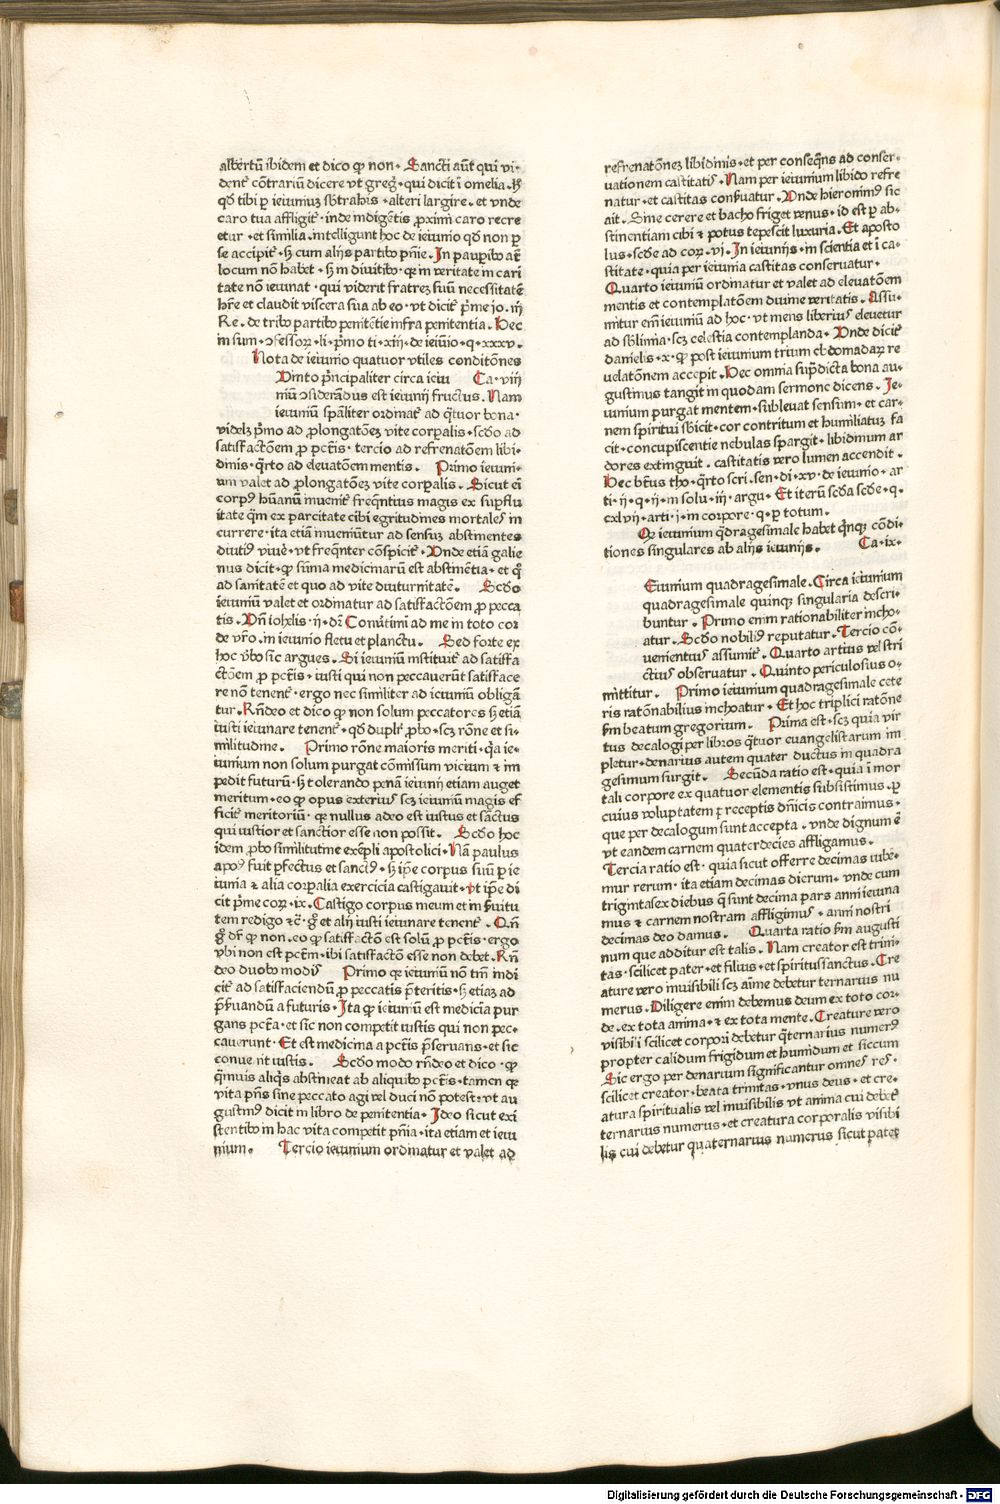 albertū ibidem et dico ꝙ non. Sancti aūt qui vi-
dent᷑ cōtrariū dicere vt greg᷑. qui dicit ī omelia. H̕
qd̕ tibi ꝑ ieiuniuꝫ sbtrahis. alteri largire. et vnde
caro tua affligit᷑. inde indigētis ꝓximi caro recre
etur. et similia. intelligunt hoc de ieiunio qd̕ non ꝑ
se accipit᷑. sꝫ cum alijs partibꝰ pn̄ie. In pauꝑibꝰ aūt
locum nō habet. sꝫ in diuitibꝰ. qꝛ in veritate in cari
tate nō ieiunat. qui viderit fratreꝫ suū necessitatē
hr̄e et claudit viscera sua ab eo. vt dicit᷑ pͥme jo. iij
Re. de tribꝰ partibꝰ penitētie infra penitentia. Hec
in sum. ↄfessoꝝ. li. pͥmo ti. xiij. de ieiūio. q. xxxv.
Nota de ieiunio quatuor vtiles conditōnes
Uinto pͥncipaliter circa ieiu Ca. viij
niū ↄsiderādus est ieiunij fructus. Nam
ieiuniū spāliter ordinat᷑ ad qͣtuor bona.
videlꝫ pͥmo ad ꝓlongatōeꝫ vite corꝑalis. scd̕o ad
satisfactōem ꝓ pctīs. tercio ad refrenatōem libi-
dinis. qͣrto ad eleuatōem mentis. Primo ieiuni-
um valet ad ꝓlongatōeꝫ vite corꝑalis. Sicut eī
corpꝰ hūanū inuenit᷑ freqn̄tius magis ex suꝑflu
itate qͣm ex parcitate cibi egritudines mortales in
currere. ita etiā inueniūtur ad sensuꝫ abstinentes
diutiꝰ viuē. vt freqn̄ter cōspicit᷑. Unde etiā galie
nus dicit. ꝙ sūma medicinarū est abstinētia. et qͥ
ad sanitatē et quo ad vite diuturnitatē. Scd̕o
ieiuniū valet et ordinatur ad satisfactōem ꝓ pecca
tis. Un̄ iohelis. ij. dr̄ Conūtimī ad me in toto cor
de vr̄o. in ieiunio fletu et planctu. Sed forte ex
hoc v̄bo sic argues. Si ieiuniū instituit᷑ ad satisfa
ctōem ꝓ pctīs. iusti qui non peccauerūt satisface
re nō tenent᷑. ergo nec similiter ad ieiuniū obligā
tur. Rn̄deo et dico ꝙ non solum peccatores sꝫ etiā
iusti ieiunare tenent᷑. qd̕ duplr̄ ꝓbo. scꝫ rōne et si-
militudine. Primo rōne maioris meriti. qͣ ie-
iunium non solum purgat cōmissum vicium et im
pedit futurū. sꝫ tolerando penā ieiunij etiam auget
meritum. eo ꝙ opus exteriꝰ scꝫ ieiuniū magis ef
ficit᷑ meritoriū. qꝛ nullus adeo est iustus et sāctus
qui iustior et sanctior esse non possit. Scd̕o hoc
idem ꝓbo similitutīne exēpli apostolici. Nā paulus
apo᷒ fuit ꝑfectus et sanctꝰ. sꝫ ip̄e corpus suū ꝑ ie
iunia ⁊ alia corꝑalia exercicia castigauit. vt ip̄e di
cit pͥme coꝝ. ix. Castigo corpus meum et in ẜuitu
tem redigo ⁊c̄. gͦ et alij iusti ieiunare tenent᷑. Qn̄
gͦ dr̄ ꝙ non. eo ꝙ satisfactō est solū ꝓ pctīs. ergo
vbi non est pctm̄. ibi satisfactō esse non debet. Rn̄
deo duobꝰ modis Primo qꝛ ieiuniū nō tm̄ indi
cit᷑ ad satisfaciendū ꝓ peccatis pͥteritis. sꝫ etiaꝫ ad
pͥẜuandū a futuris. Ita ꝙ ieiuniū est medicīa pur
gans pctā. et sic non competit iustis qui non pec-
cauerunt. Et est medicina a pctīs pͥseruans. et sic
conuenit iustis. Scd̕o modo rn̄deo et dico. ꝙ
qͣmuis aliqͥs abstineat ab aliquibꝰ pctīs. tamen qꝛ
vita pn̄s sine peccato agi vel duci nō potest. vt au
gustinꝰ dicit in libro de penitentia. Ideo sicut exi
stentibꝰ in hac vita competit pn̄ia. ita etiam et ieiu
nium. Tercio ieiunium ordinatur et valet ad
refrenatōneꝫ libidinis. et per conseqn̄s ad conser-
uationem castitatis. Nam per ieiunium libido refre
natur. et castitas conẜuatur. Unde hieronimꝰ sic
ait. Sine cerere et bacho friget venus. id est ꝑ ab-
stinentiam cibi ⁊ potus tepescit luxuria. Et aposto
lus. scd̕e ad coꝝ. vi. In ieiunijs. in scientia et ī ca-
stitate. quia per ieiunia castitas conseruatur.
Quarto ieiuniū ordinatur et valet ad eleuatōem
mentis et contemplatōem diuine veritatis. Assu-
mitur em̄ ieiuniū ad hoc. vt mens liberius eleuetur
ad sblimia. scꝫ celestia contemplanda. Unde dicit᷑
danielis. x. ꝙ post ieiunium trium ebdomadaꝝ re
uelatōnem accepit. Hec omnia supͣdicta bona au-
gustinus tangit in quodam sermone dicens. Ie-
iunium purgat mentem. subleuat sensum. et car-
nem spiritui sbicit. cor contritum et humiliatuꝫ fa
cit. concupiscentie nebulas spargit. libidinum ar
dores extinguit. castitatis vero lumen accendit.
Hec btūs tho. qͣrto scri. sen. di. xv. de ieiunio. ar
ti. ij. q. ij. in solu. iij. argu. Et iterū scd̕a scd̕e. q.
cxlvij. arti. j. in corpore. q. ꝑ totum.
Qꝛ ieiunium qͣdragesimale habet qͥnqꝫ cōdi-
tiones singulares ab alijs ieiunijs. Ca. ix.
Eiunium quadragesimale. Circa ieiunium
quadragesimale quinqꝫ singularia descri-
buntur. Primo enim rationabiliter incho-
atur. Scd̕o nobiliꝰ reputatur. Tercio cō-
uenientius assumit᷑. Quarto artius vel stri
ctius obseruatur. Quinto periculosius o-
mittitur. Primo ieiunium quadragesimale cete
ris ratōnabilius inchoatur. Et hoc triplici ratōne
ẜm beatum gregorium. Prima est. scꝫ quia vir
tus decalogi per libros qͣtuor euangelistarum im
pletur. denarius autem quater ductus in quadra
gesimum surgit. Secūda ratio est. quia ī mor
tali corpore ex quatuor elementis subsistimus. ꝑ
cuius voluptatem pͥceptis dn̄icis contraimus.
que per decalogum sunt accepta. vnde dignum ē
vt eandem carnem quaterdecies affligamus.
Tercia ratio est. quia sicut offerre decimas iube-
mur rerum. ita etiam decimas dierum. vnde cum
trigintasex diebus qͥ sunt decima pars anni ieiuna
mus ⁊ carnem nostram affligimus. anni nostri
decimas deo damus. Quarta ratio ẜm augusti
num que additur est talis. Nam creator est trini-
tas. scilicet pater. et filius. et spiritussanctus. Cre
ature vero inuisibili scꝫ aīme debetur ternarius nu
merus. Diligere enim debemus deum ex toto cor-
de. ex tota anima. ⁊ ex tota mente. Creature vero
visibili scilicet corpori debetur qͣternarius numerꝰ
propter calidum frigidum et humidum et siccum
Sic ergo per denarium significantur omnes res.
scilicet creator. beata trinitas. vnus deus. et cre-
atura spiritualis vel inuisibilis vt anima cui debet᷑
ternarius numerus. et creatura corporalis visibi
lis cui debetur quaternarius numerus sicut patet
Digitalisierung gefördert durch die Deutsche Forschungsgemeinschaft - DFG